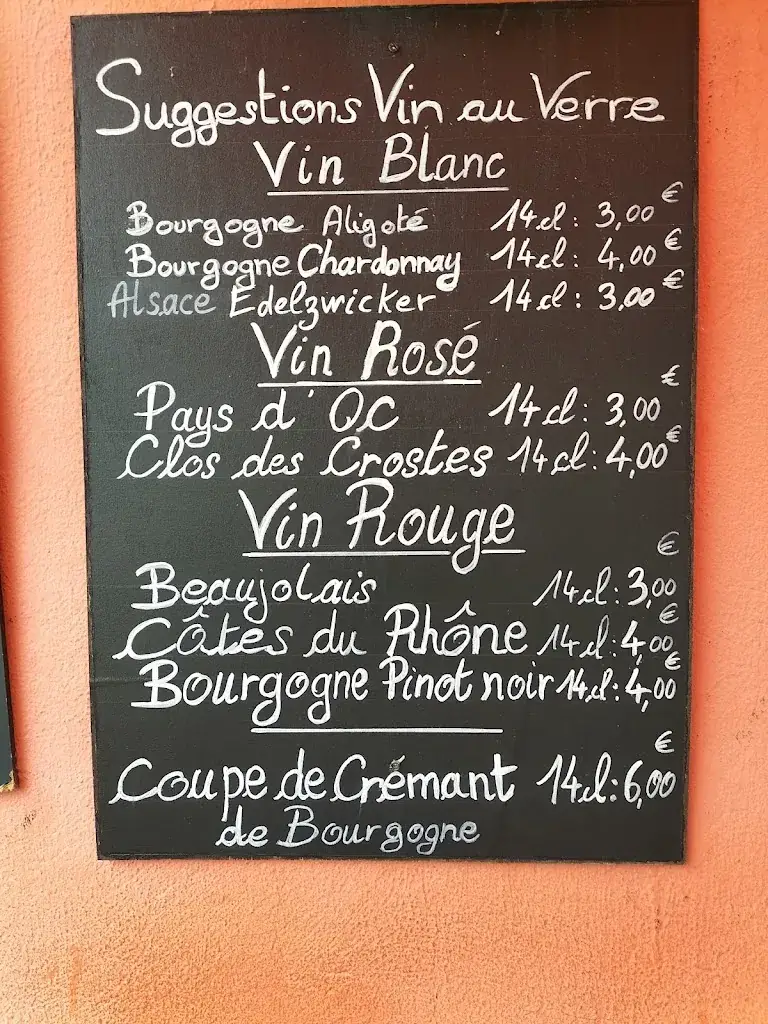 Suggestions Vin au Verre
Vin Blanc
Bourgogne Aligoté 14cl: 3,00 €
Bourgogne Chardonnay 14cl: 4,00 €
Alsace Edelzwicker 14cl: 3,00 €
Vin Rosé
Pays d'OC 14cl: 3,00 €
Clos des Crostes 14cl: 4,00 €
Vin Rouge
Beaujolais 14cl: 3,00 €
Côtes du Rhône 14cl: 4,00 €
Bourgogne Pinot noir 14cl: 4,00 €
Coupe de Crémant 14cl: 6,00 €
de Bourgogne